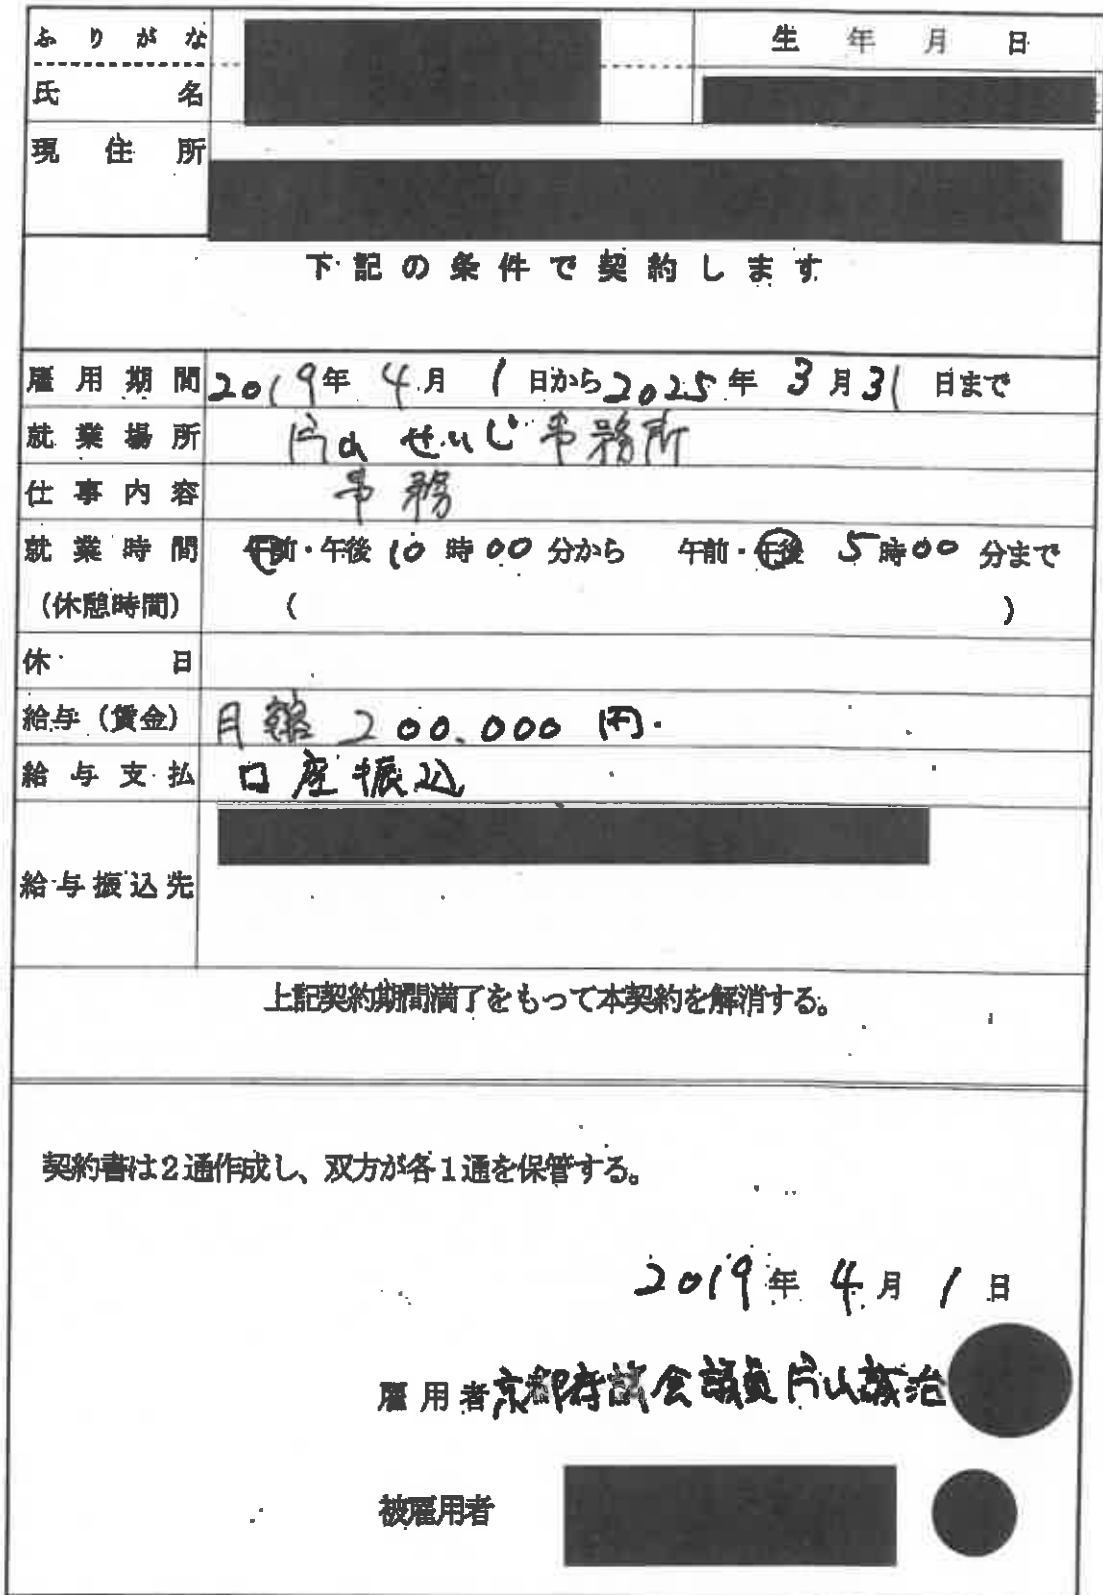 ふりがな
生年月日
氏名
現住所
下記の条件で契約します
雇用期間 2019年 4月 1日から2025年 3月31日まで
就業場所 片山せいじ事務所
仕事内容 事務
就業時間 午前・午後10時00分から 午前・午後 5時00分まで
(休憩時間) ( )
休日
給与(賃金) 月額 200.000円.
給与支払 口座振込
給与振込先
上記契約期間満了をもって本契約を解消する。
契約書は2通作成し、双方が各1通を保管する。
2019年 4月 1日
雇用者 京都府議会議員片山誠治
被雇用者